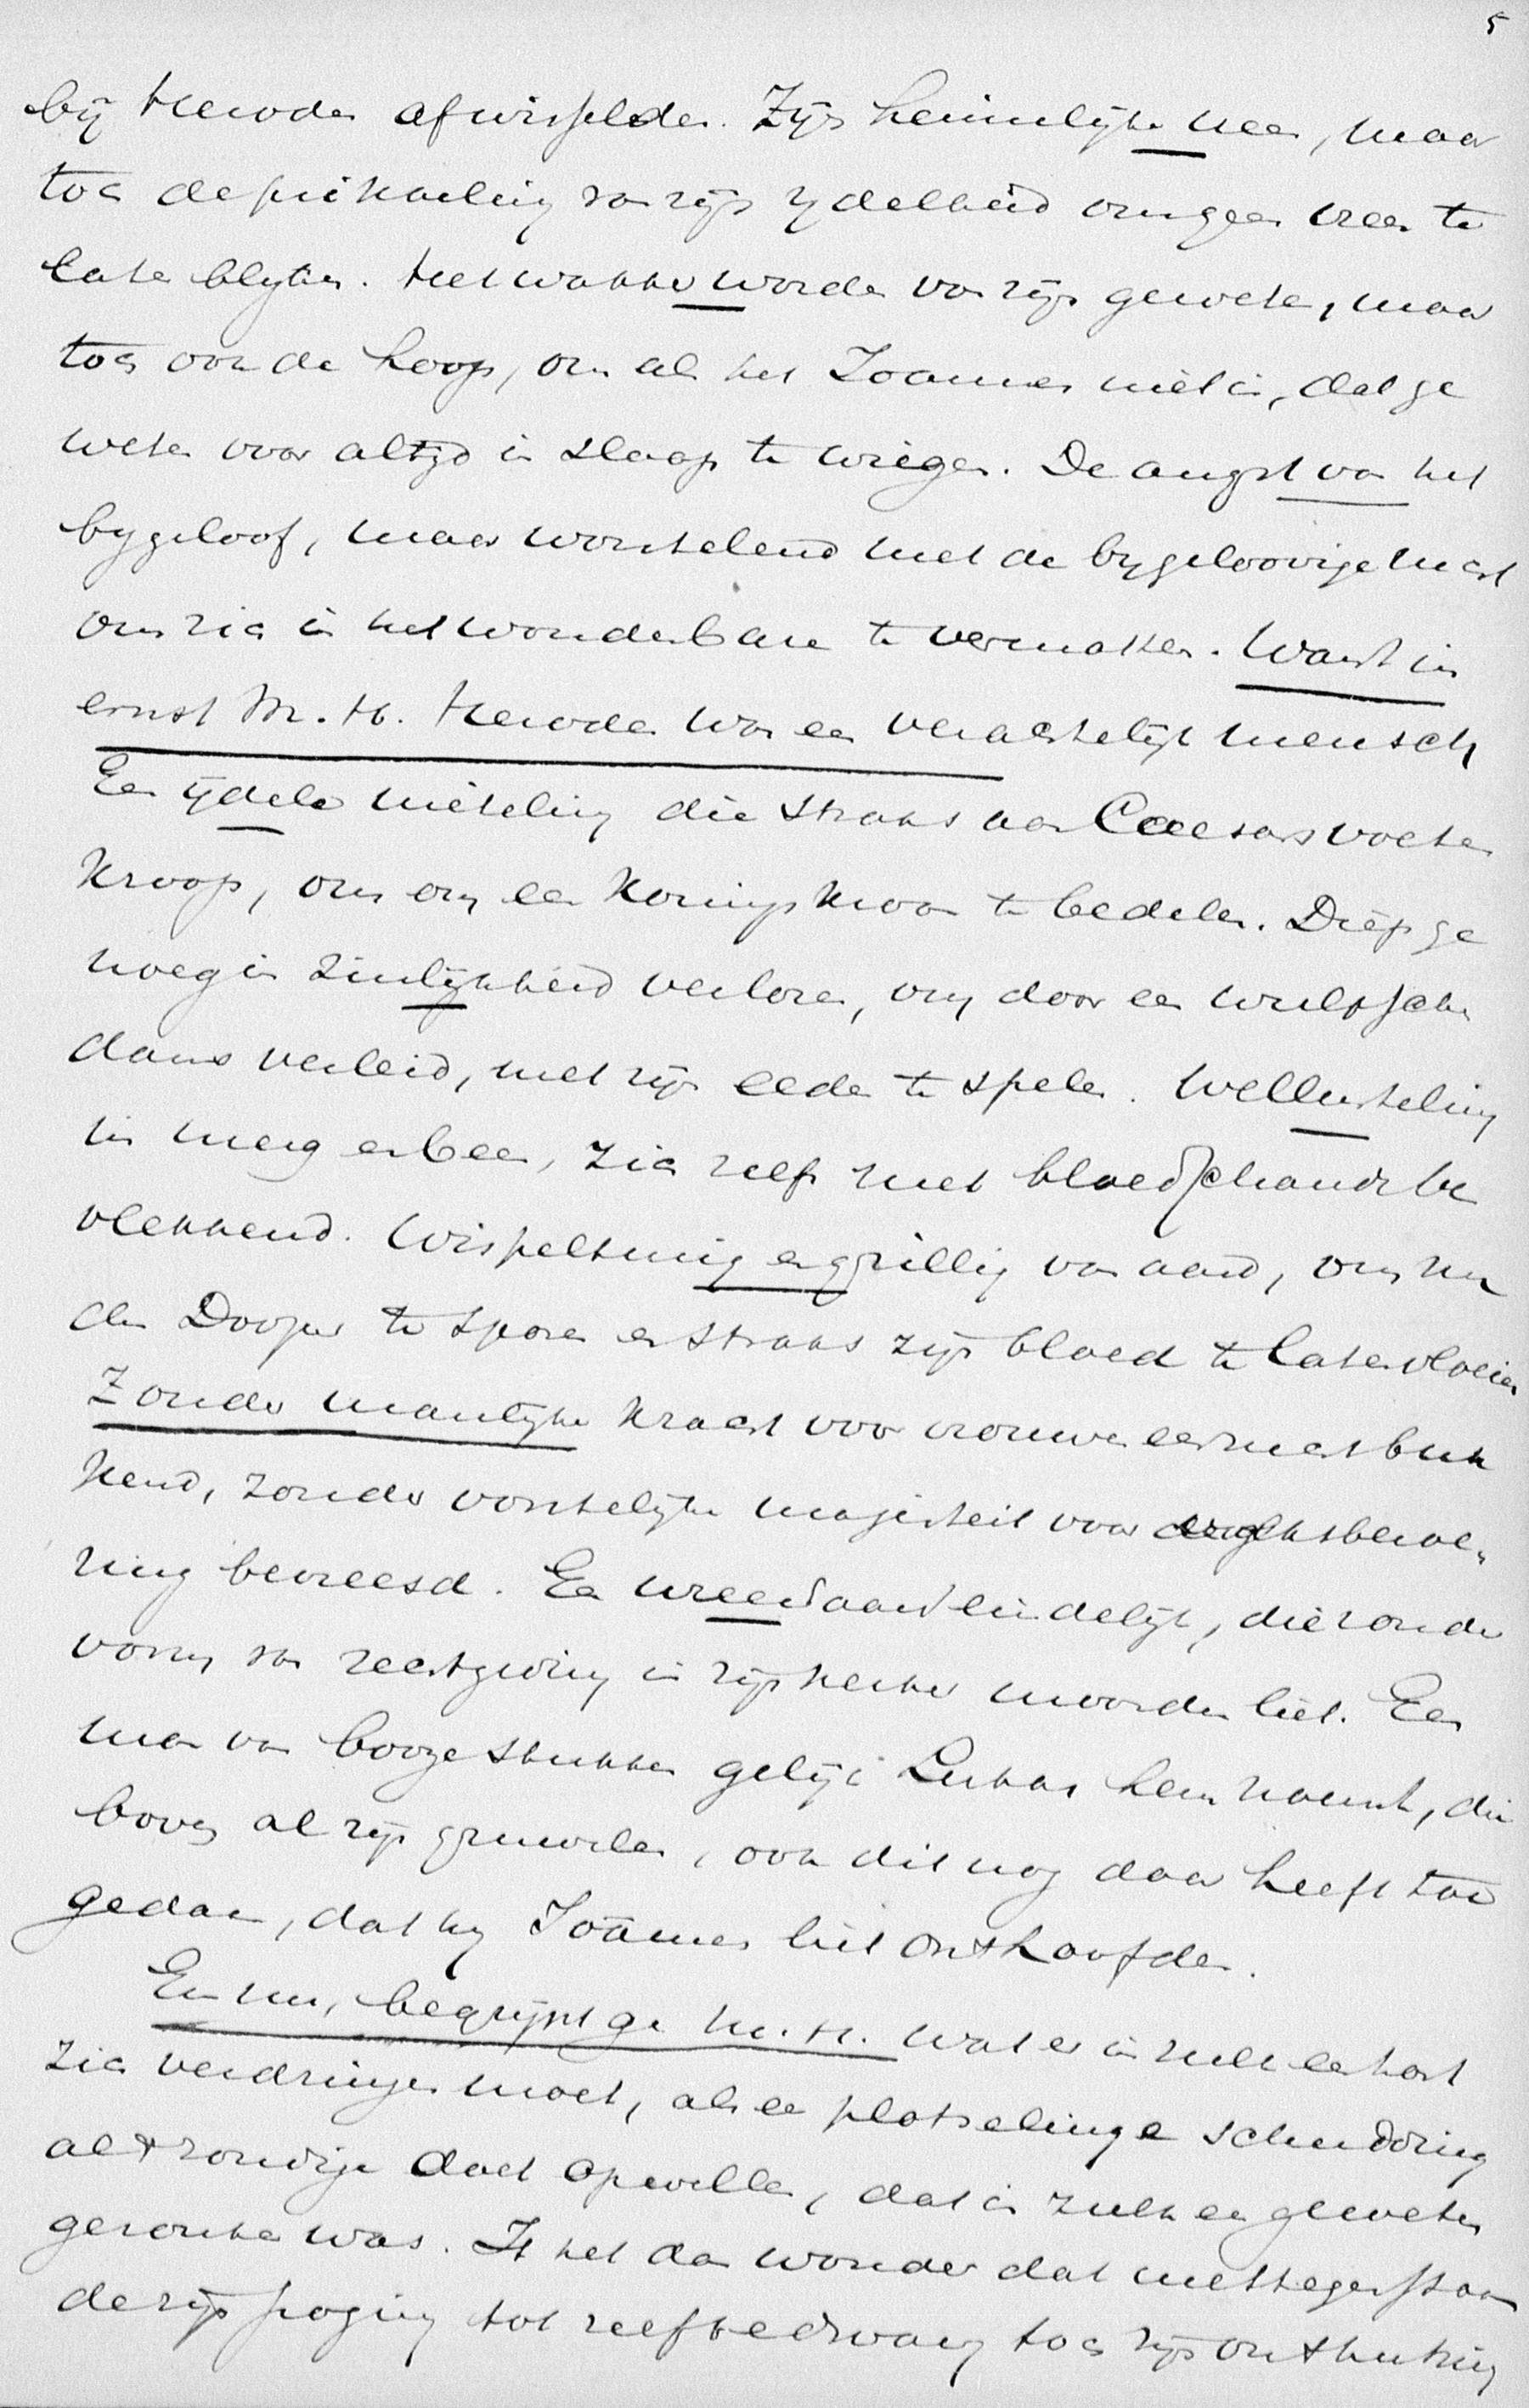 5
bij Herodes afwisselden. Zijn heimelijke vrees, maar
toch de prikkeling van zijn ydelheid om geen vrees te
laten blyken. Het wakker worden van zijn geweten, maar
toch ook de hoop, om als het Joannes niet is, dat ge
weten voor altyd in slaap te wiegen. De angst van het
bygeloof, maar worstelend met de bygeloovige lust
om zich in het wonderbare te vermaken. Want in
ernst M. H. Herodes was een verachtelijk mensch
Een ijdele nieteling die straks aan Caesars voeten
kroop, om om een koningskroon te bedelen. Diep ge
noeg in zinlijkheid verloren, om door een wulpschen
dans verleid, met zijn eeden te spelen. Wellusteling
in merg en been, zich zelf met bloedschande be
vlekkend. Wispelturig en grillig van aard, om nu
den Dooper te sparen en straks zijn bloed te laten vloeien
Zonder manlyke kracht voor vrouwe eerzucht buk
kend, zonder vorstelyke majesteit voor volksberoe,
ring bevreesd. Een wreedaard eindelijk, die zonder
vorm van rechtgeving in zijn kerker moorden liet. Een
man van booze stukken gelijk Lukas hem noemt, die
boven al zijn gruwelen, ook dit nog daar heeft toe
gedaan, dat hy Joännes liet onthoofden.
En nu, begrijpt ge M. H. wat er in zulk een hart
zich verdringen moet, als een plotselinge schudding
al 't zondige doet opwellen, dat in zulk een geweten
gezonken was. Is het dan wonder dat niettegenstaan
de zijn poging tot zelfbedwang toch zijn ontsteking